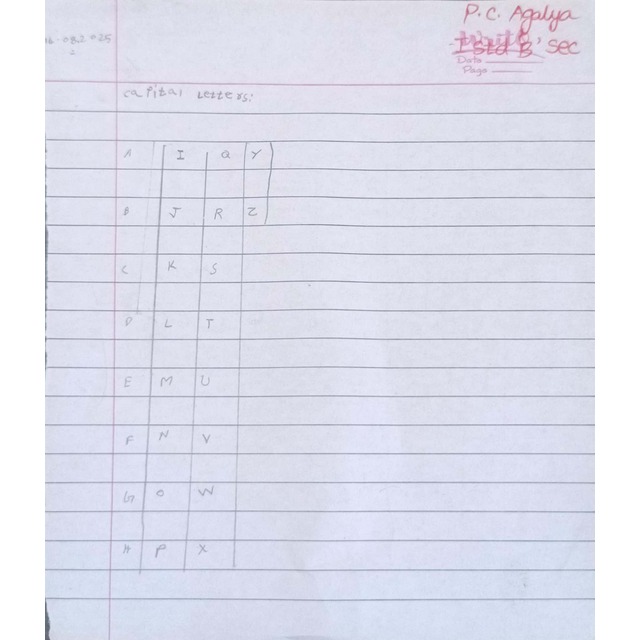 P.C. Agalya
I Std 'B' Sec
Date
Page
capital Letters:
A I Q Y
B J R Z
C K S
D L T
E M U
F N V
G O W
H P X